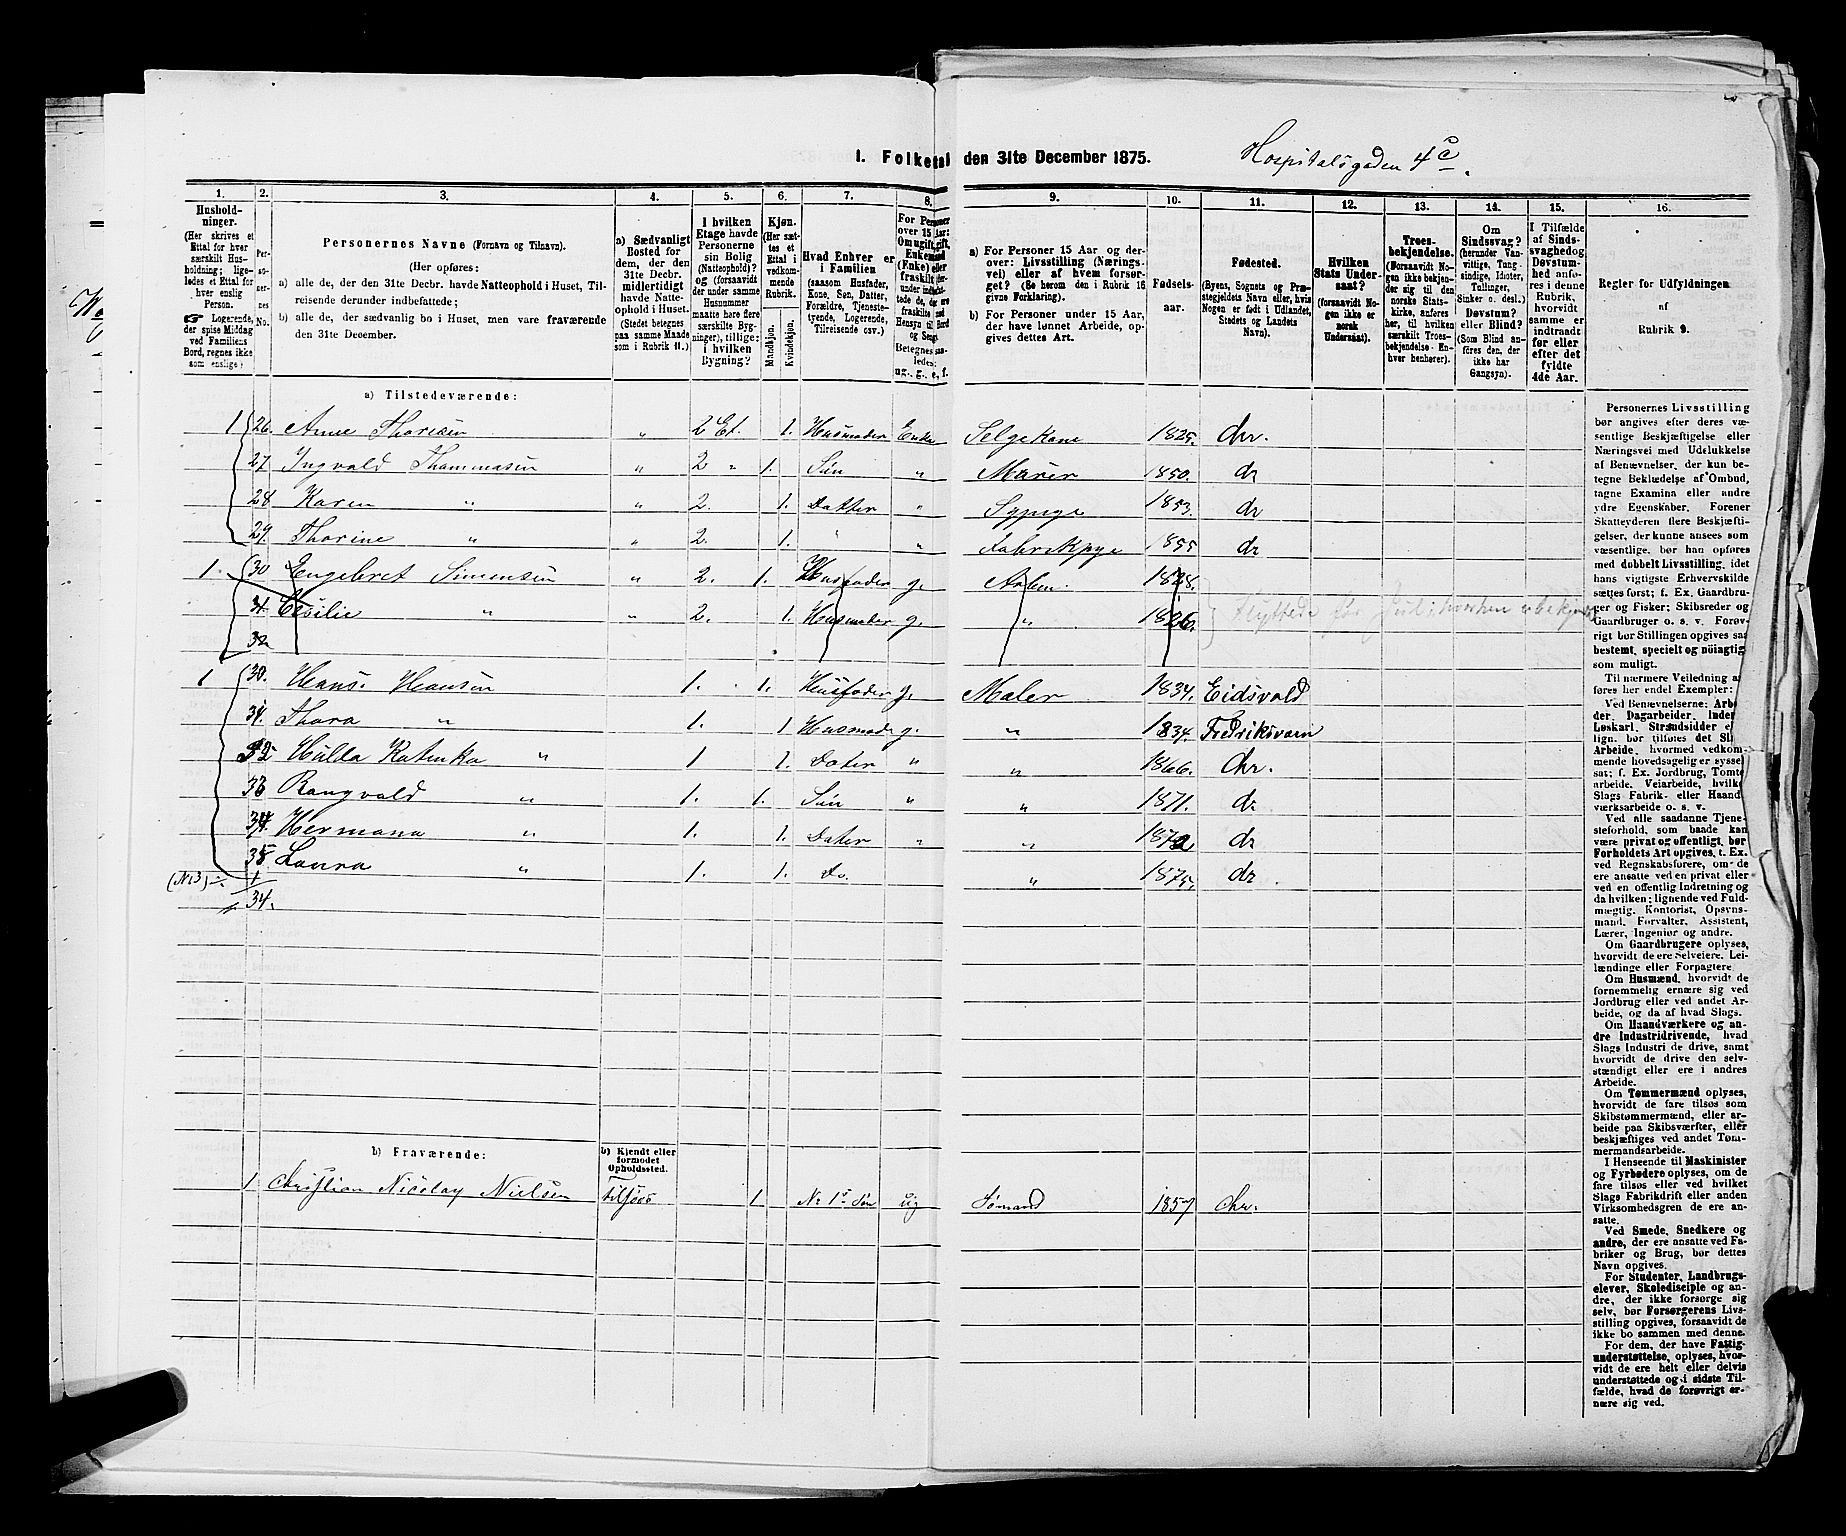 I. Folketal den 31te December 1875.
Hospitalsgaden 4c.
1. 2. 3. 4. 5. 6. 7. 8. 9. 10. 11. 12. 13. 14. 15. 16.
Husholdninger.
(Her skrives et Ettal for hver særskilt Husholdning; ligeledes et Ettal for hver enslig Person.
☞ Logerende, der spise Middag ved Familiens Bord, regnes ikke som enslige.)
Personernes No.
Personernes Navne (Fornavn og Tilnavn).
(Her opføres:
a) alle de, der den 31te Decbr. havde Natteophold i Huset, Tilreisende derunder indbefattede;
b) alle de, der sædvanlig bo i Huset, men vare fraværende den 31te December.
a) Sædvanligt Bosted for dem, der den 31te Decbr. midlertidigt havde Natteophold i Huset.
(Stedet betegnes paa samme Maade som i Rubrik 11.)
I hvilken Etage havde Personerne sin Bolig (Natteophold)? (forsaavidt der under samme Husnummer maatte høre flere særskilte Bygninger), tillige: i hvilken Bygning?
Kjøn.
(Her sættes et Ettal i vedkommende Rubrik.
Mandkjøn. Kvindekjøn.
Hvad Enhver er i Familien
(saasom Husfader, Kone, Søn, Datter, Forældre, Tjenestetyende, Logerende, Tilreisende osv.)
For Personer over 15 Aar: Om ugift, gift, Enkemand (Enke) eller fraskilt
Betegnes saaledes: ug., g., e., f.
a) For Personer 15 Aar og derover: Livsstilling (Næringsvei) eller af hvem forsørget? (Se herom den i Rubrik 16 givne Forklaring).
b) For Personer under 15 Aar, der have lønnet Arbeide, opgives dettes Art.
Fødselsaar.
Fødested.
(Byens, Sognets og Præstegjeldets Navn eller, hvis Nogen er født i Udlandet, Stedets og Landets Navn).
Hvilken Stats Undersaat?
(forsaavidt Nogen ikke er norsk Undersaat).
Troesbekjendelse.
(Forsaavidt Nogen ikke bekjender sig til den norske Statskirke, anføres her, til hvilken særskilt Troesbekjendelse Enhver henhører).
Om Sindssvag? (herunder Vanvittige, Tungsindige, Idioter, Tullinger, Sinker o. desl.) Døvstum? eller Blind? (Som Blind anføres den, der ikke har Gangsyn).
I Tilfælde af Sindssvaghed og Døvstumhed anføres i denne Rubrik, hvorvidt samme er indtraadt før eller efter det fyldte 4de Aar.
Regler for Udfyldningen af Rubrik 9.
a) Tilstedeværende:
1 26. Anne Thoresen " 2 Et. 1. Husmoder Enke Selgekone 1825. Chr.
27 Ingvald Thommasen " 2 " 1. Sön " Murer 1850. dr
28 Karen " " 2. 1. Datter " Sypige 1853. dr
29. Thorine " " 2. 1. " " Fabrikpge 1855 dr
1. 30 Engebret Simensen " 2. 1. Husfader g. Arbm. 1828.
31. Cesilie " " 2. 1. Husmoder g. " 1826. Flyttede før Jul
32
1 30. Hans. Hansen 1. 1. Husfader g. Maler 1834. Eidsvold
31. Thora " 1. 1. Husmode g. " 1834. Fredriksværn
32 Hulda Katinka " 1 1. Dater " " 1866. Chr.
33 Rangvald " 1. 1. Sön " " 1871. dr
34. Hermana " 1. 1. Dater " " 1872 dr
35. Laura " 1. 1. Do. " 1875. dr
(No 3) ÷ 1
34.
b) Fraværende:
b) Kjendt eller formodet Opholdssted.
1 Christian Nicolay Nielsen tilsøes 1 No 1s Søn ug Sømand 1857 Chr.
Personernes Livsstilling bør angives efter deres væsentlige Beskjæftigelse eller Næringsvei med Udelukkelse af Benævnelser, der kun betegne Beklædelse af Ombud, tagne Examina eller andre ydre Egenskaber. Forener Skatteyderen flere Beskjæftigelser, der kunne ansees som væsentlige, bør han opføres med dobbelt Livsstilling, idet hans vigtigste Erhvervskilde sættes først; f. Ex. Gaardbruger og Fisker; Skibsreder og Gaardbruger o. s. v. Forøvrigt bør Stillingen opgives saa bestemt, specielt og nöiagtig som muligt.
Til nærmere Veiledning anføres her endel Exempler:
Ved Benævnelserne: Arbeider, Dagarbeider, Løskarl, Strandsidder lign. bør tilføies det Slags Arbeide, hvormed vedkommende hovedsagelig er sysselsat; f. Ex. Jordbrug, Tomtearbeide, Veiarbeide, hvilket Slags Fabrik- eller Haandværksarbeide o. s. v.
Ved alle saadanne Tjenesteforhold, som baade kan være privat og offentligt, bør Forholdets Art opgives, t. Ex. ved Regnskabsførere, om de ere ansatte ved en privat eller ved en offentlig Indretning og da hvilken; lignende ved Fuldmægtig, Kontorist, Opsynsmand, Forvalter, Assistent, Lærer, Ingeniør og andre.
Om Gaardbrugere oplyses, hvorvidt de ere Selveiere, Leilændinge eller Forpagtere.
Om Husmænd, hvorvidt de fornemmelig ernære sig ved Jordbrug eller ved andet Arbeide, og da af hvad Slags.
Om Haandværkere og andre Industridrivende, hvad Slags Industri de drive, samt hvorvidt de drive den selvstændigt eller ere i andres Arbeide.
Om Tømmermænd oplyses, hvorvidt de fare tilsøs som Skibstømmermænd, eller arbeide paa Skibsværfter, eller beskjæftiges ved andet Tømmermandsarbeide.
I Henseende til Maskinister og Fyrbødere oplyses, om de fare tilsøs eller ved hvilket Slags Fabrikdrift eller anden Virksomhedsgren de ere ansatte.
Ved Smede, Snedkere og andre, der ere ansatte ved Fabriker og Brug, bør dettes Navn opgives.
For Studenter, Landbrugselever, Skoledisciple og andre, der ikke forsørge sig selv, bør Forsørgerens Livsstilling opgives, forsaavidt de ikke bo sammen med denne.
For dem, der have Fattigunderstøttelse, oplyses, hvorvidt de ere helt eller delvis understøttede og i sidste Tilfælde, hvad de forøvrigt ernære sig ved.